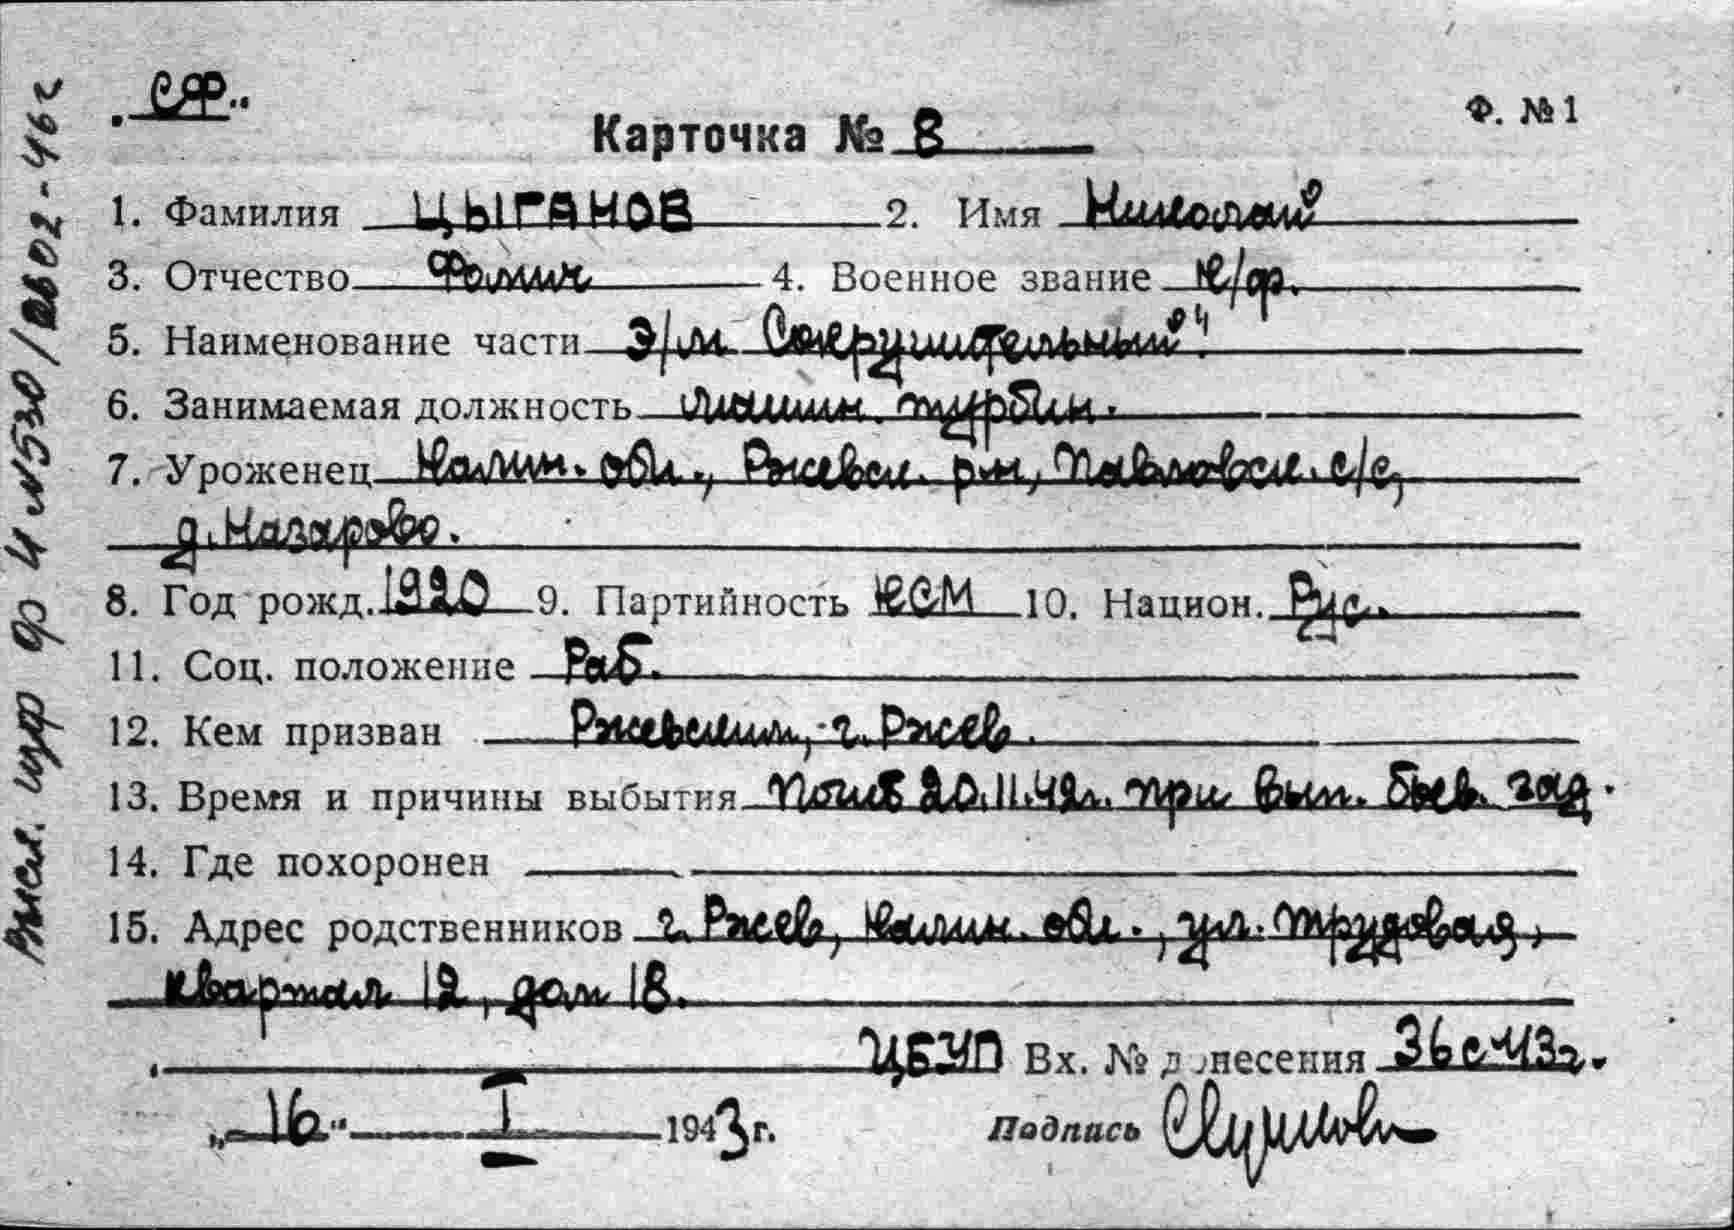 „СФ"
Ф. №1
Карточка № 8
1. Фамилия ЦЫГАНОВ 2. Имя Николай
3. Отчество Фомич 4. Военное звание к/ф.
5. Наименование части Э/м Сокрушительный".
6. Занимаемая должность машин. турбин.
7. Уроженец Калин. обл., Ржевск. р-н, Павловск. с/с,
д. Назарово.
8. Год рожд. 1920 9. Партийность КСМ 10. Национ. Рус.
11. Соц. положение Раб.
12. Кем призван Ржевским, г. Ржев.
13. Время и причины выбытия Погиб 20.11.42г. при вып. боев. зад.
14. Где похоронен
15. Адрес родственников г. Ржев, Калин. обл., ул. Трудовая,
квартал 12, дом 18.
ЦБУП Вх. № донесения 36с-43г.
„16" I 1943 г. Подпись